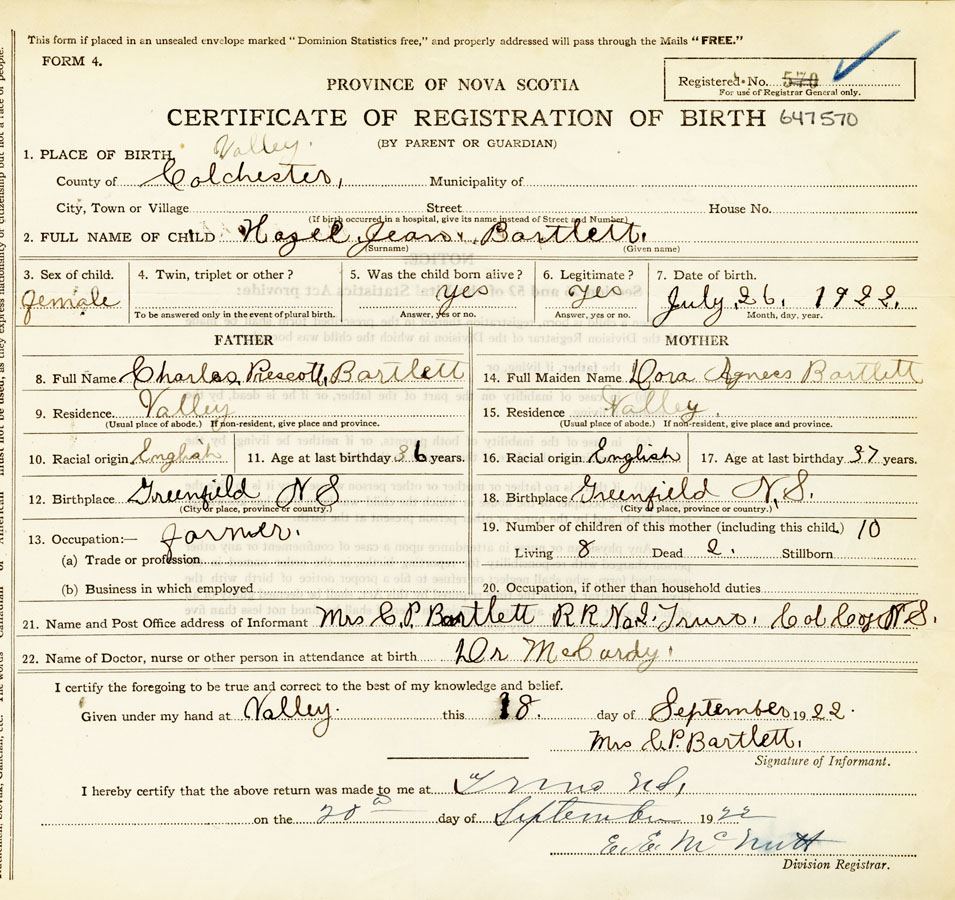 This form if placed in an unsealed envelope marked "Dominion Statistics free," and properly addressed will pass through the Mails "FREE."
FORM 4.
Registered No. 570
For use of Registrar General only.
PROVINCE OF NOVA SCOTIA
CERTIFICATE OF REGISTRATION OF BIRTH 647570
(BY PARENT OR GUARDIAN)
1. PLACE OF BIRTH Valley.
County of Colchester, Municipality of
City, Town or Village Street House No.
(If birth occurred in a hospital, give its name instead of Street and Number)
2. FULL NAME OF CHILD Hazel Jean. Bartlett.
(Surname) (Given name)
3. Sex of child. 4. Twin, triplet or other? 5. Was the child born alive? 6. Legitimate? 7. Date of birth.
Female yes yes July 26. 1922.
To be answered only in the event of plural birth. Answer, yes or no. Answer, yes or no. Month, day, year.
FATHER MOTHER
8. Full Name Charles Prescott, Bartlett 14. Full Maiden Name Dora Agnees Bartlett
9. Residence. Valley 15. Residence Valley.
(Usual place of abode.) If non-resident, give place and province. (Usual place of abode.) If non-resident, give place and province.
10. Racial origin English 11. Age at last birthday 36 years. 16. Racial origin English 17. Age at last birthday 37 years.
12. Birthplace Greenfield N S 18. Birthplace Greenfield N.S.
(City or place, province or country.) (City or place, province or country.)
13. Occupation:— farmer. 19. Number of children of this mother (including this child.) 10
(a) Trade or profession Living 8 Dead 2. Stillborn
(b) Business in which employed 20. Occupation, if other than household duties
21. Name and Post Office address of Informant Mrs C.P. Bartlett R R No 2. Truro. Col Co N S.
22. Name of Doctor, nurse or other person in attendance at birth Dr McCurdy.
I certify the foregoing to be true and correct to the best of my knowledge and belief.
Given under my hand at Valley. this 18. day of September 1922.
Mrs C.P. Bartlett.
Signature of Informant.
I hereby certify that the above return was made to me at Truro N.S.
on the 20 day of September 1922
E. E. McNutt
Division Registrar.